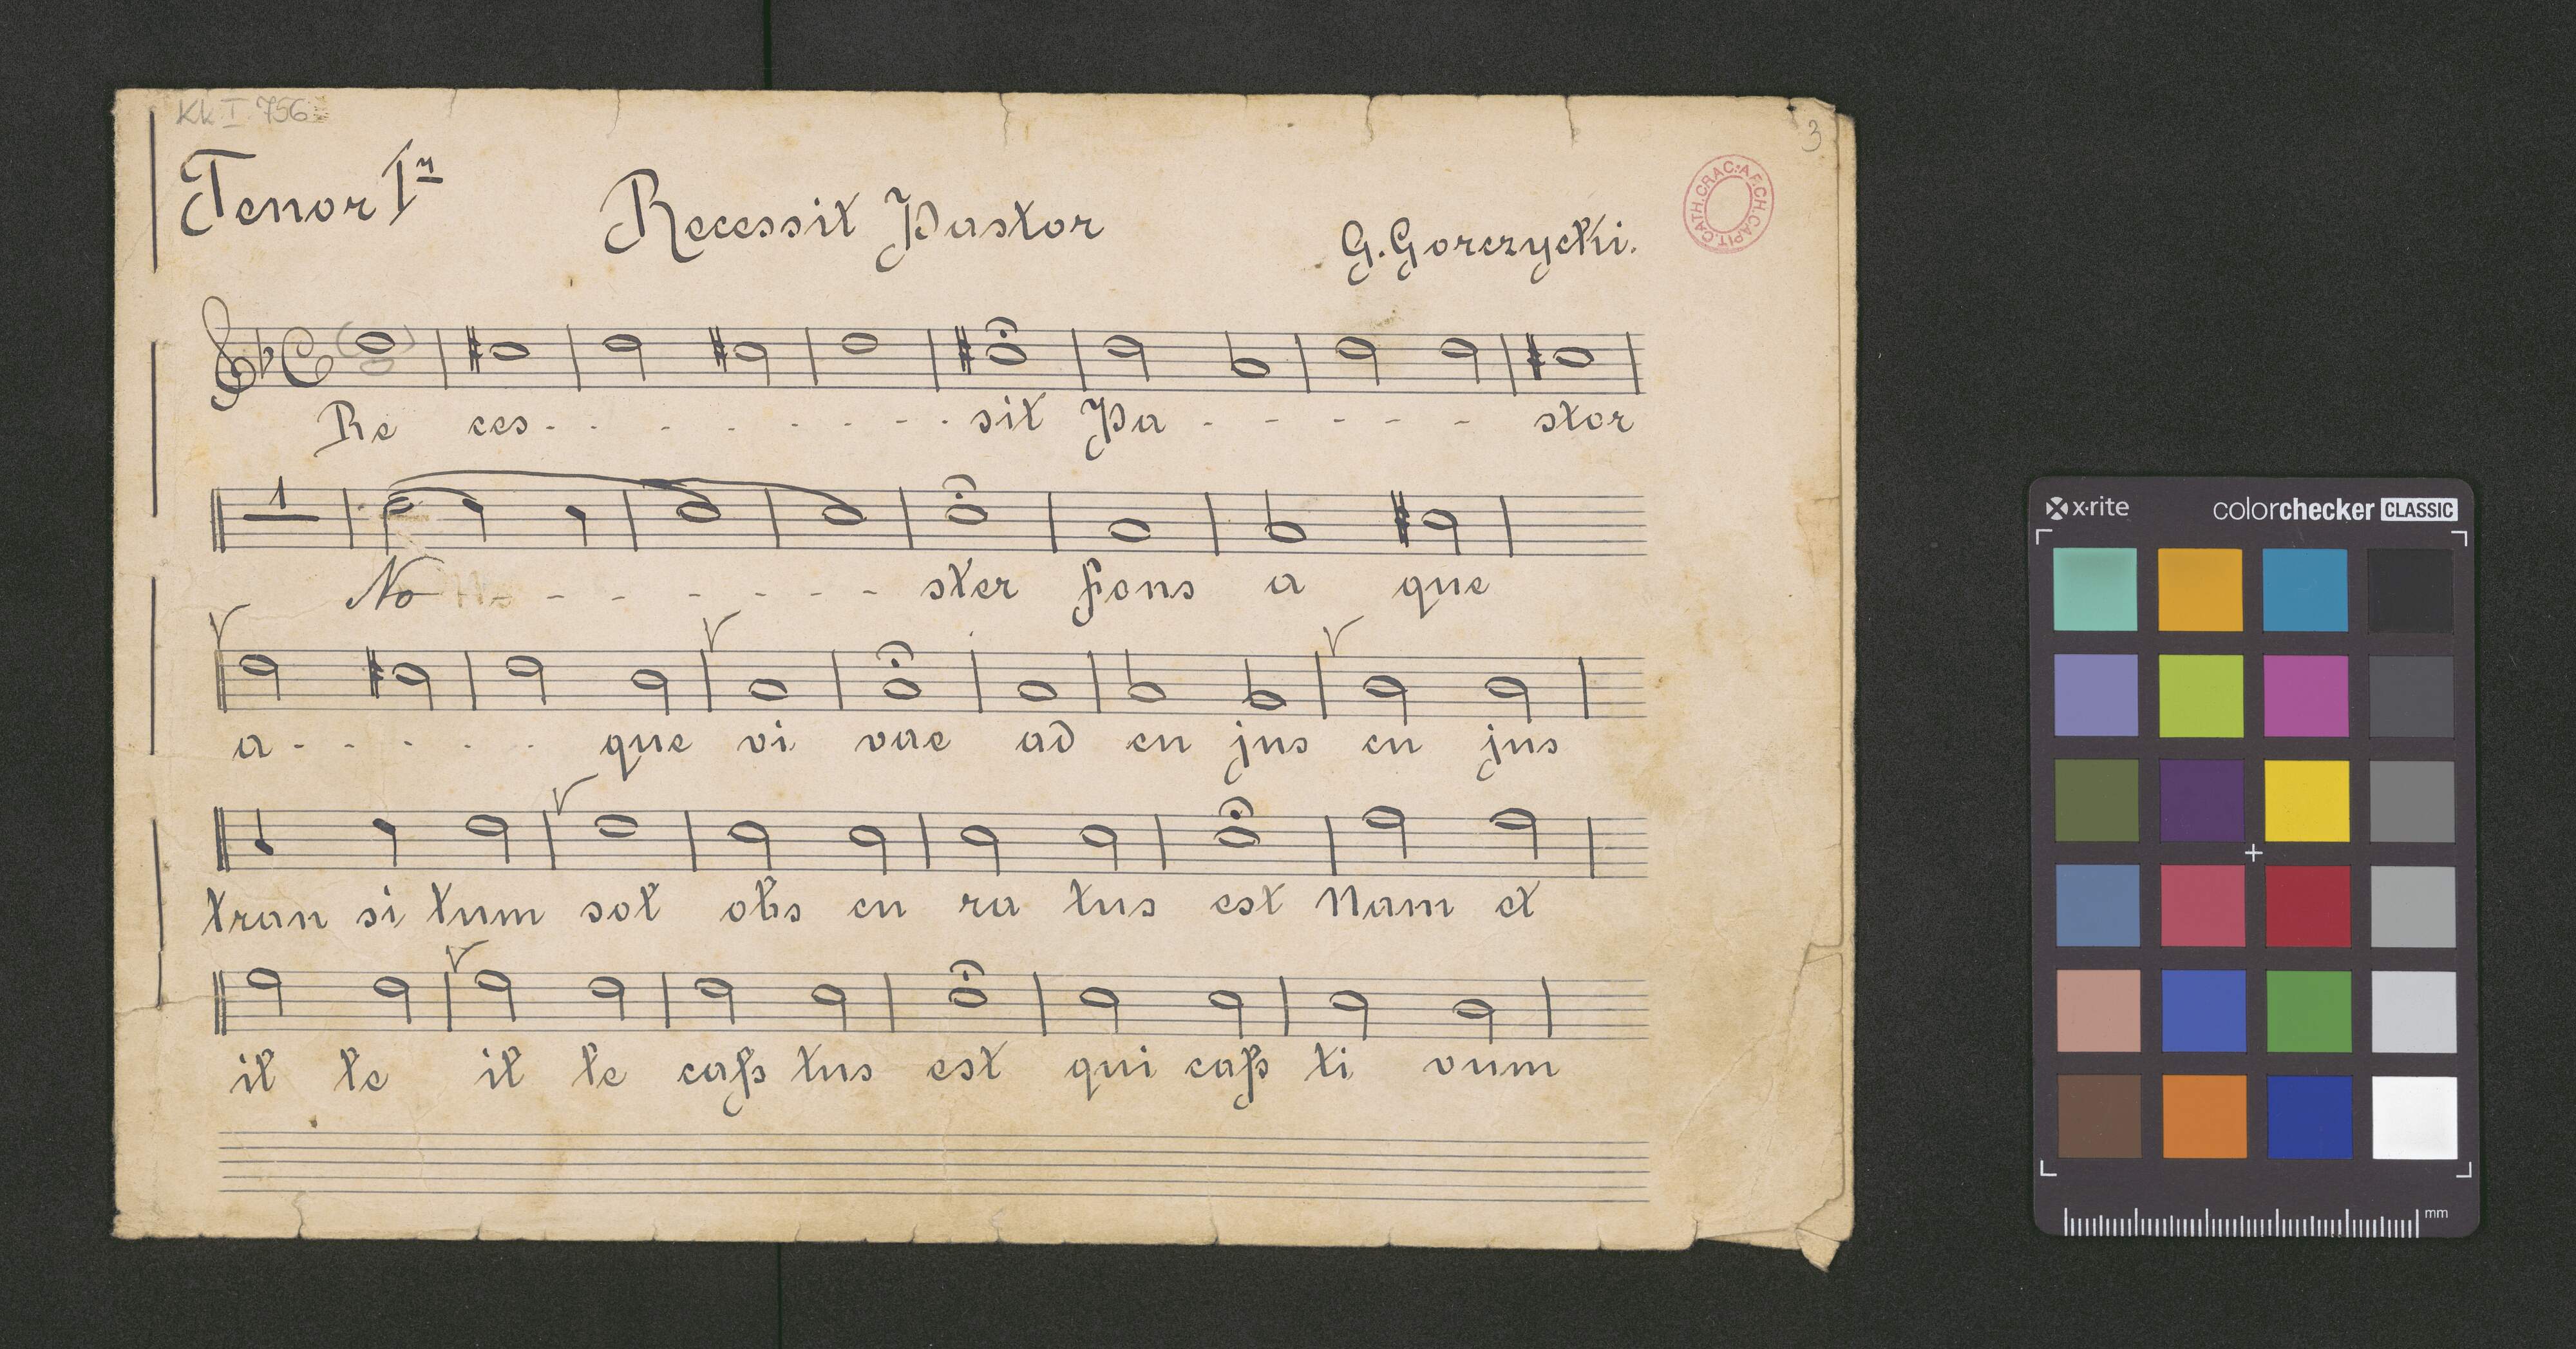 Kk I. 756
3
Tenor I
Recessit Pastor
G. Gorczycki.
CATH.CRAC: ARCH.CAPIT.
Re ces - - - - - - - - sit Pa - - - - - stor
1
No - - - - - - - ster Fons a que
a - - - - - que vi vae ad cu jus cu jus
tran si tum sol obs cu ra tus est Nam et
il le il le cap tus est qui cap ti vum
x·rite
colorchecker CLASSIC
mm